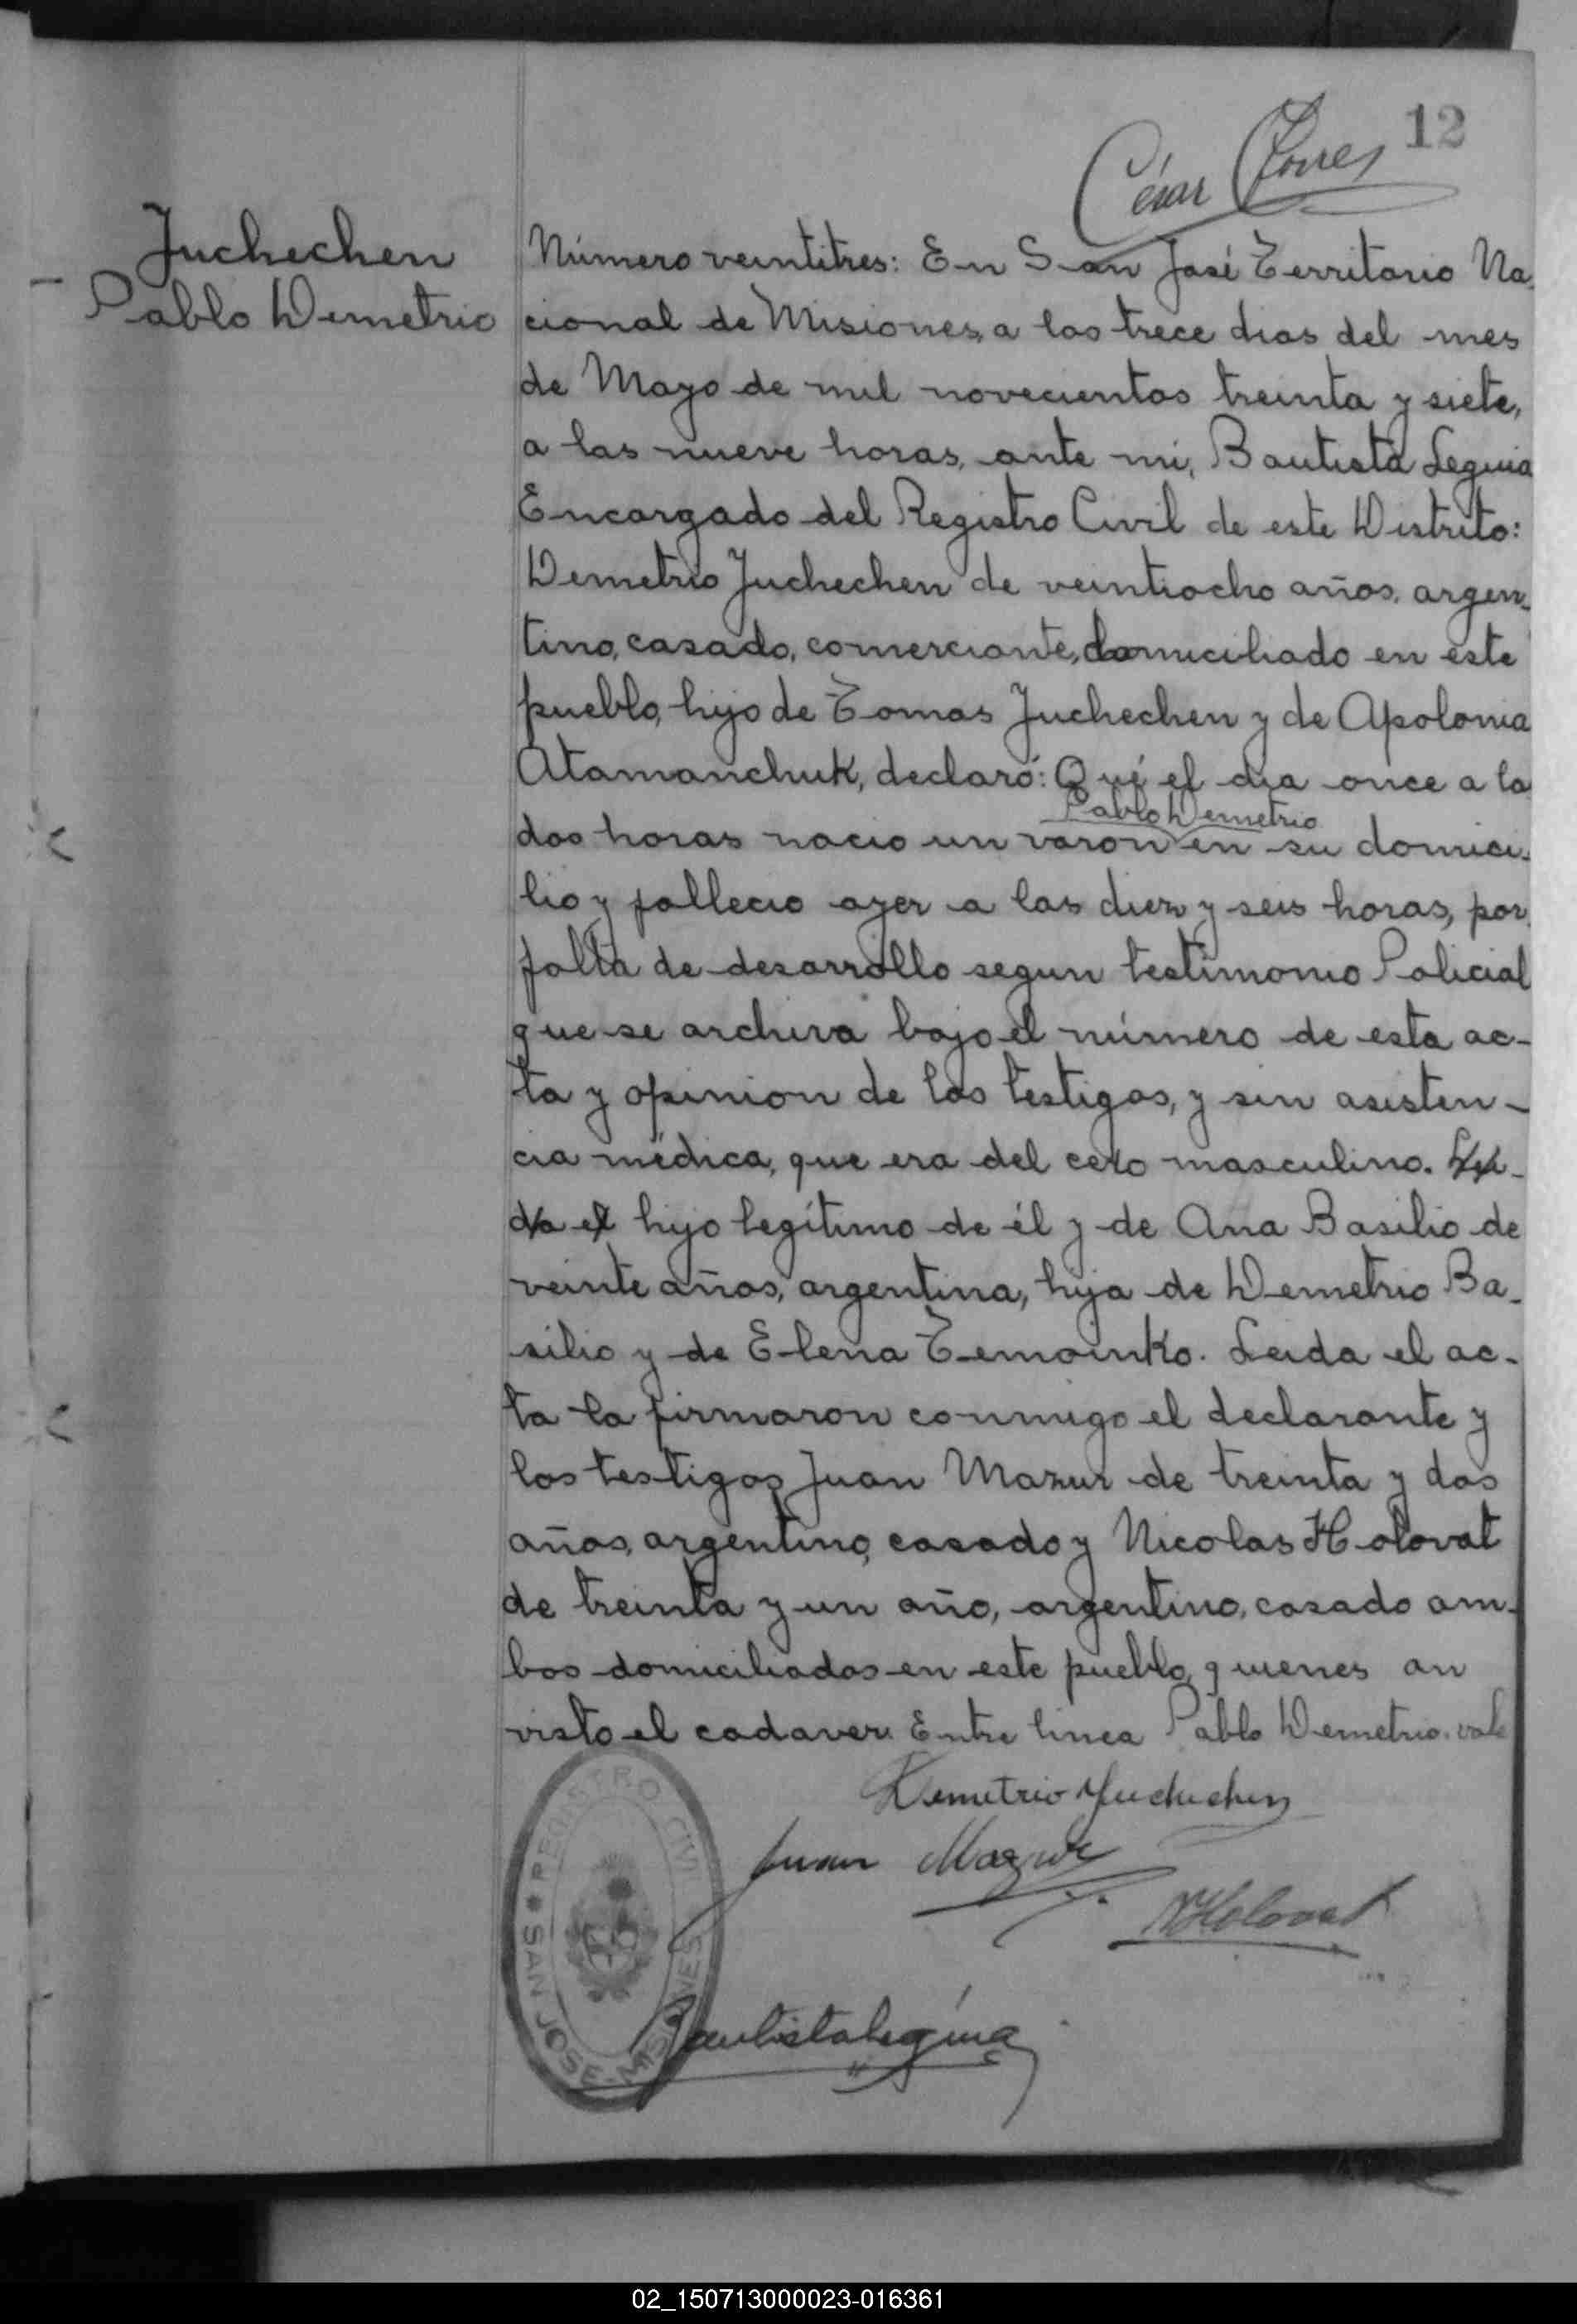 12
César Torres
Juchechen
Pablo Demetrio
Número veintitres: En San José Territorio Na-
cional de Misiones, a los trece dias del mes
de Mayo de mil novecientos treinta y siete,
a las nueve horas, ante mi, Bautista Leguia
Encargado del Registro Civil de este Distrito:
Demetrio Juchechen de veintiocho años, argen-
tino, casado, comerciante, domiciliado en este
pueblo, hijo de Tomas Juchechen y de Apolonia
Atamanchuk, declaró: Qué el dia once a la
Pablo Demetrio
dos horas nacio un varon en su domici-
lio y fallecio ayer a las diez y seis horas, por
falta de desarrollo segun testimonio Policial
que se archiva bajo el número de esta ac-
ta y opinion de los testigos, y sin asisten-
cia médica, que era del cexo masculino. Lei-
da el hijo legítimo de él y de Ana Basilio de
veinte años, argentina, hija de Demetrio Ba-
silio y de Elena Temoinko. Leida el ac-
ta la firmaron conmigo el declarante y
los testigos Juan Mazur de treinta y dos
años, argentino, casado y Nicolas Holovat
de treinta y un año, argentino, casado am-
bos domiciliados en este pueblo, quienes an
visto el cadaver. Entre linea Pablo Demetrio. vale
Demetrio Juchechen
Juan Mazur
N Holovat
Bautista Leguia
REGISTRO CIVIL
SAN JOSE - MISIONES
02_150713000023-016361